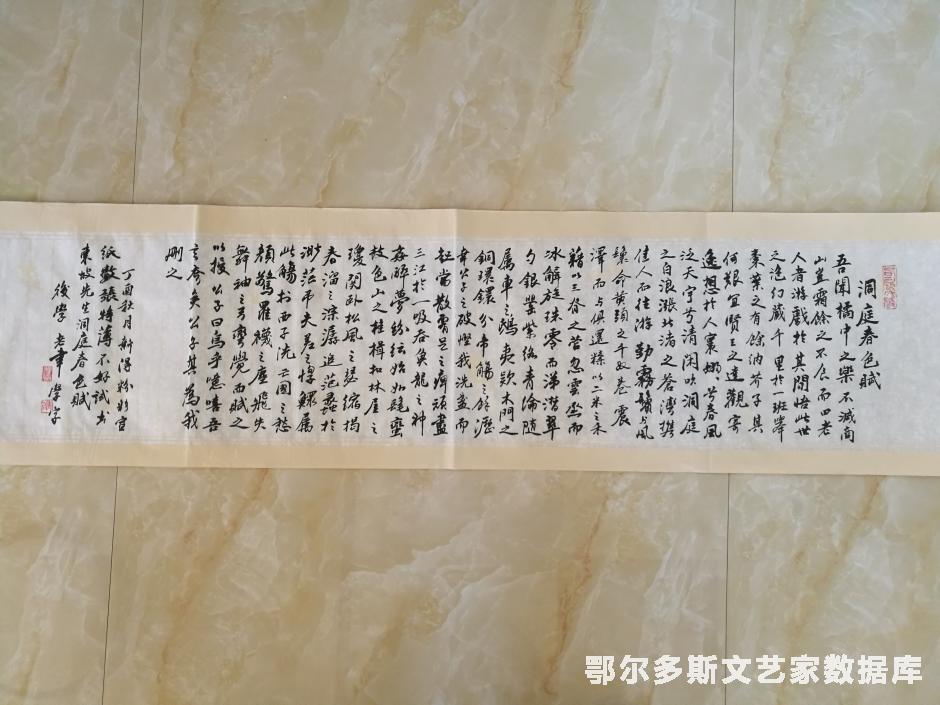 洞庭春色賦
吾聞橘中之樂不減商
山豈霜餘之不食而四老
人者游戲於其間悟此世
之泡幻藏千里於一班舉
棗葉之有餘納芥子其
何艱宜賢王之達觀寄
逸想於人寰嫋々兮春風
泛天宇兮清閑吹洞庭
之白浪漲北渚之蒼灣攜
佳人而往游勤霧鬢與風
鬟命黃頭之千奴卷震
澤而與俱還糅以二米之禾
藉以三脊之菅忽雲蒸而
冰解旋珠零而涕潸翠
勺銀罌紫絡青倫隨
屬車之鴟夷款木門之
銅環分帝觴之餘瀝
幸公子之破慳我洗盞而
起嘗散腰足之痹頑盡
三江於一吸吞魚龍之神
姦醉夢紛紜始如髦蠻
鼓包山之桂楫扣林屋之
瓊関卧松風之瑟縮揭
春溜之淙潺追范蠡於
渺茫弔夫差之惸鰥屬
此觴於西子洗亡國之愁
顏驚羅襪之塵飛失
舞袖之弓彎覺而賦之
以授公子曰烏乎噫嘻吾
言夸矣公子其為我
刪之
丁酉秋月新得粉彩宣
紙數張特薄不好試書
東坡先生洞庭春色賦
後學老聿學字
鄂尔多斯文艺家数据库